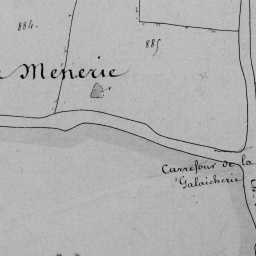 884.
885
Menerie
Carrefour de la
Galaicherie